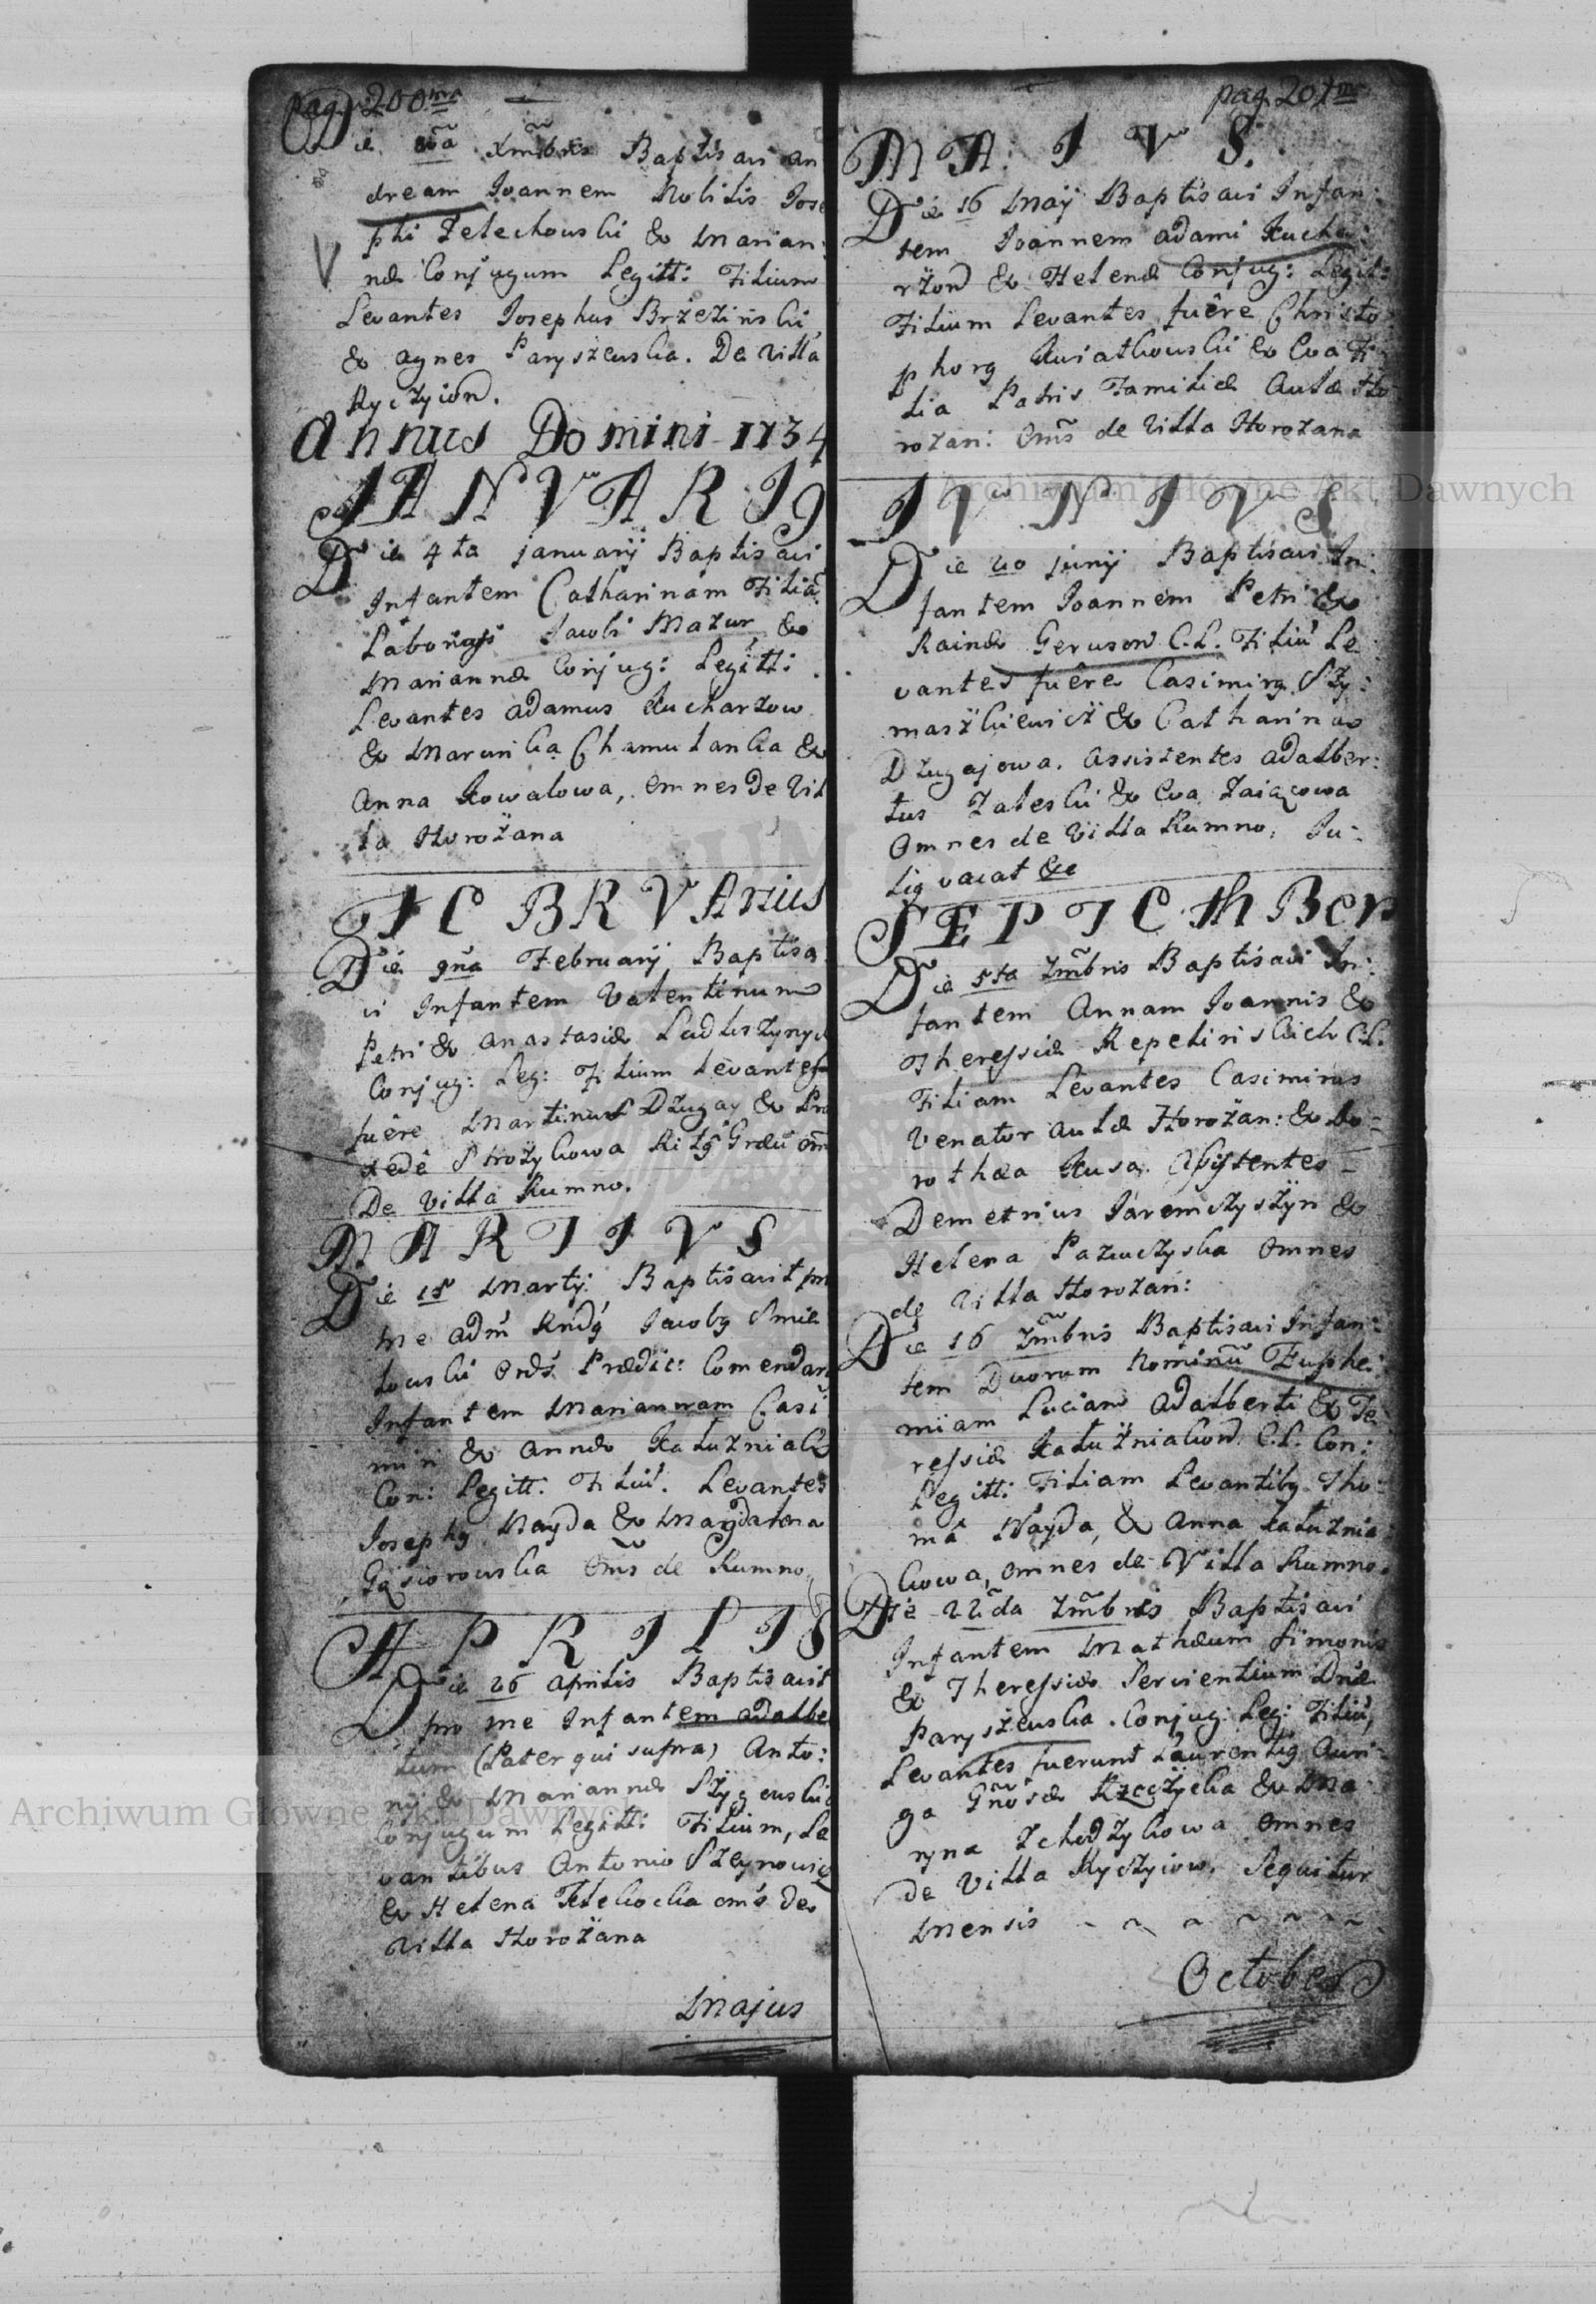 pag. 200ma
Die Xmbris Baptisavi An
dream Joannem Nobilis Jose
phi Zelechowski & Marian:
næ Conjugum Legitt: Filium
Levantes Josephus Brzezinski
& Agnes Paryszewska. De Villa
Ryczyiow.
Annus Domini 1734
JANVARIg
Die 4ta januarij Baptisavi
Infantem Catharinam Filiã
Jacobi Mazur &
Mariannæ Conjug: Legitt:
Levantes Adamus Kucharzow
& Marunka Chamulanka &
Anna Kowalowa, omnes De Vil
la Horożana
FEBRVARIUS
Die 9na February Baptisa
vi Infantem Valentinum
Petri & Anastasiæ
Conjug: Leg: Filium Levantes
fuêre Martinus Dzugay &
Strożykowa Ritg
De Villa Rumno.
MARTIVS
Die 15 Martij Baptisavit pro
me Adm Rndg Jacobg Smie
towski Ords Prædic: Comendari
Infantem Mariannam Casi
miri & Annæ Kałuzniak
Con: Legitt: Filiã. Levantes
Josephg Nayda & Magdalena
Gąsiorowska Oms de Rumno.
APRILIS
Die 26 Aprilis Baptisavit
pro me Infantem Adalbe
tum (Pater qui supra) Anto:
nij & Mariannæ
Conjugum Legitt: Filium, Le
vantibus Antonio Szeynowic
& Helena Telekocka oms De
Villa Horożana
Majus
pag. 201ma
MAIVS.
Die 16 Maij Baptisavi Infan:
tem Joannem Adami Kucha:
rżow & Helenæ Conjug: Legit:
Filium Levantes fuêre Christo
phorg Kwiatkowski & Eva Fi
lia Patris Familiæ Aulæ Ho
rożan: Oms de Villa Horożana
IVNIVS
Die 20 junij Baptisavi In:
fantem Joannem Petri &
Rainæ Gerusow C.L. Filiũ Le
vantes fuêre Casimirg Szy:
maszkiewicz & Catharina
Dzugajowa. Assistentes Adalber:
tus Zaleski & Eva Zaiącowa
Omnes de Villa Rumno, Ju:
lig vacat &c
SEPTEMBer
Die 5ta 7mbris Baptisavi In:
fantem Annam Joannis &
Theressiæ Repelinskich C.L.
Filiam Levantes Casimirus
Venator Aulæ Horożan: & Do=
rothæa Kusa. Assistentes =
Demetrius Jaremczyszyn &
Helena Pazuczyska Omnes
de Villa Horożan:
Die 16 7mbris Baptisavi Infan:
tem Duorum Nominũ Euphe:
miam Luciam Adalberti & Te
ressiæ Kałużniakow C.L. Con:
Legitt: Filiam Levantibg Tho:
mâ Nayda, & Anna Kałuznia:
kowa, omnes de Villa Rumno.
Die 22da 7mbris Baptisavi
Infantem Mathæum Simonis
& Theressiæ Servientium Dnæ
Paryszewska. Conjug: Leg: Filiũ,
Levantes fuerunt Laurentig Auri
ga Gnosæ Rzeczycka & Ma
ryna Zchodzykowa omnes
de Villa Ryczyiow. Sequitur
Mensis ~ ~ ~ ~ ~ ~ ~
October
Archiwum Główne Akt Dawnych
Archiwum Główne Akt Dawnych